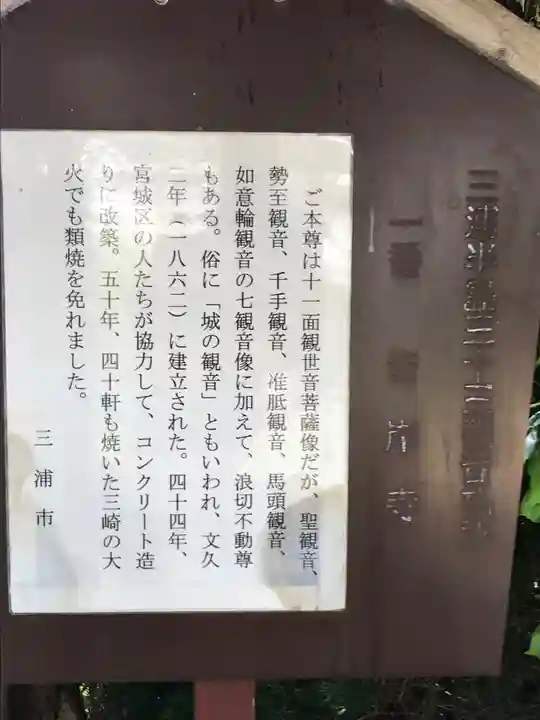 三浦半島三十三観音
一番 音岸寺
ご本尊は十一面観世音菩薩像だが、聖観音、
勢至観音、千手観音、准胝観音、馬頭観音、
如意輪観音の七観音像に加えて、浪切不動尊
もある。俗に「城の観音」ともいわれ、文久
二年（一八六二）に建立された。四十四年、
宮城区の人たちが協力して、コンクリート造
りに改築。五十年、四十軒も焼いた三崎の大
火でも類焼を免れました。
三浦市